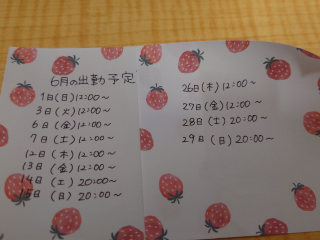 6月の出勤予定
1日(日)12:00～
3日(火)12:00～
6日(金)12:00～
7日(土)12:00～
12日(木)12:00～
13日(金)12:00～
14日(土)20:00～
15日(日)20:00～
26日(木)12:00～
27日(金)12:00～
28日(土)20:00～
29日(日)20:00～